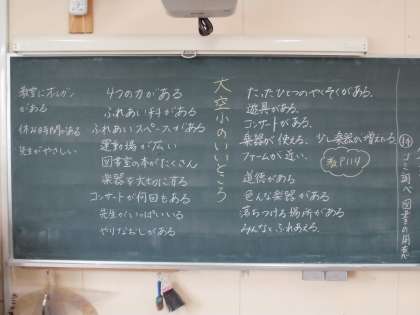 大空小のいいところ
たったひとつのやくそくがある。
遊具がある。
コンサートがある。
楽器が使える。少し楽器が増える
ファームが近い。
道徳がある
色んな楽器がある
落ちつける場所がある
みんなとふれあえる。
4つの力がある
ふれあい科がある
ふれあいスペースがある
運動場が広い
図書室の本がたくさん
楽器を大切にする
コンサートが何回もある
先生がいっぱいいる
やりなおしがある
教室にオルガン
がある
休み時間がある
先生がやさしい